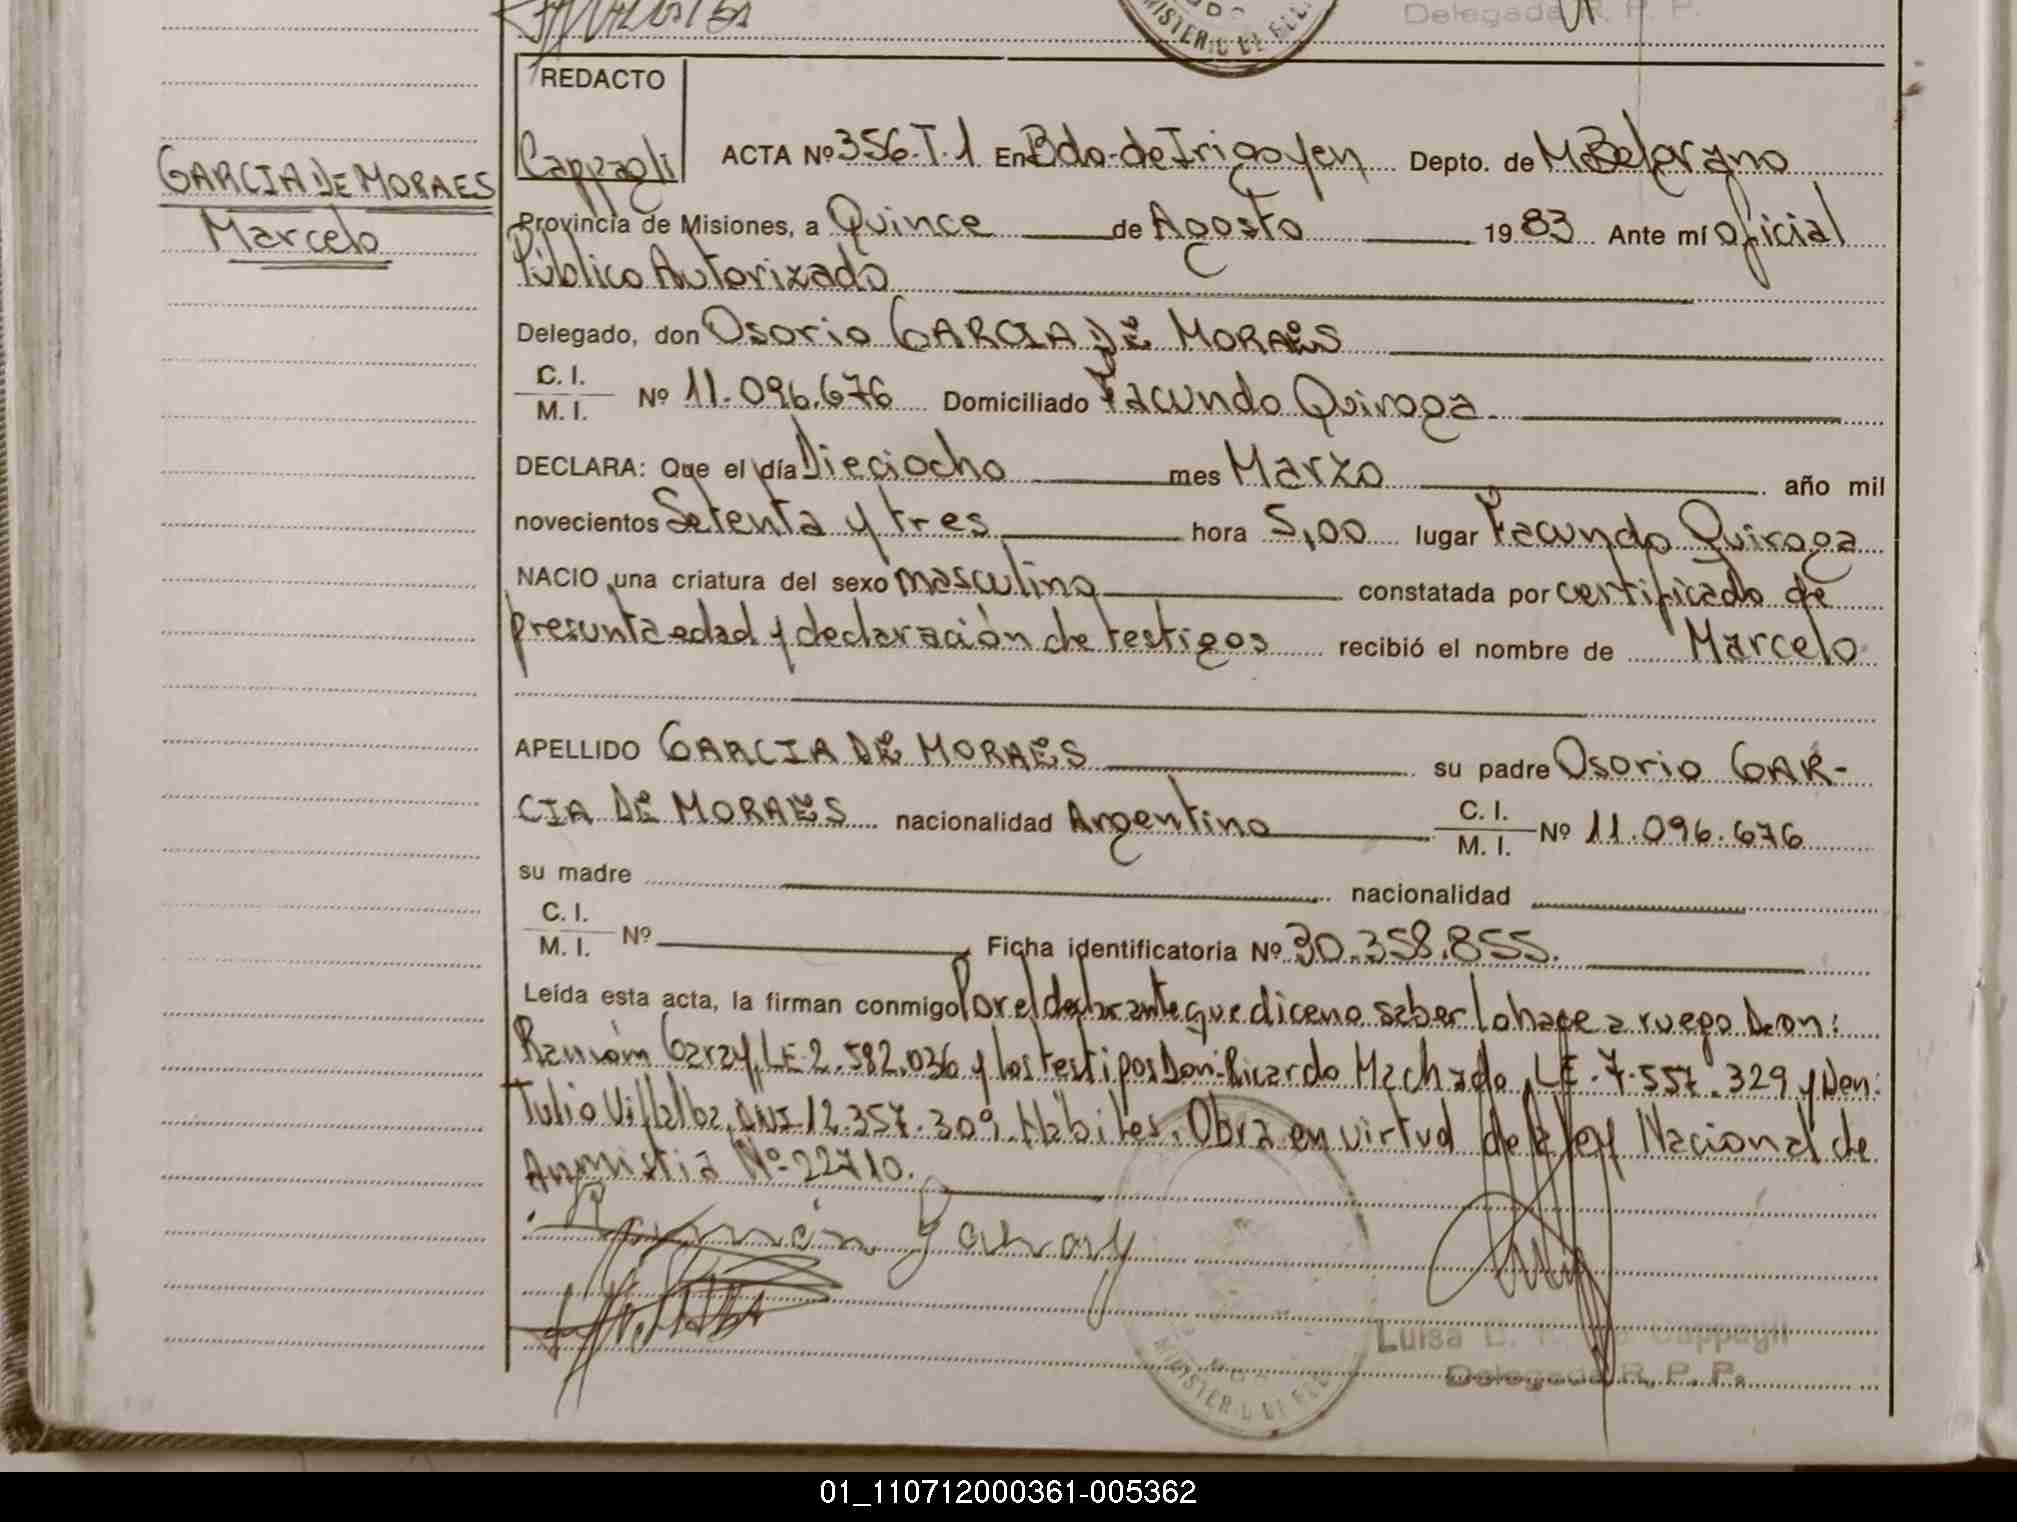 Delegada R. P. P.
MINISTER
REDACTO
Cappagli
GARCIA DE MORAES
Marcelo
ACTA Nº 356-T.1 En Bdo-de Irigoyen Depto. de M Belgrano
Provincia de Misiones, a Quince de Agosto 1983 Ante mí oficial
Público Autorizado
Delegado, don Osorio GARCIA DE MORAES
C. I.
M. I. Nº 11.096.676 Domiciliado Facundo Quiroga
DECLARA: Que el día Dieciocho mes Marzo año mil
novecientos Setenta y tres hora 5,00 lugar Facundo Quiroga
NACIO una criatura del sexo masculino constatada por certificado de
presunta edad y declaración de testigos recibió el nombre de Marcelo
APELLIDO GARCIA DE MORAES su padre Osorio GAR-
CIA DE MORAES nacionalidad Argentino C. I. M. I. Nº 11.096.676
su madre nacionalidad
C. I.
M. I. Nº Ficha identificatoria Nº 30.358.855.
Leída esta acta, la firman conmigo Por el declarante que dice no saber lo hace a ruego Don:
Ramón Garay, LE-2.582.036 y los testigos Don: Ricardo Machado, LE-7.557.329 y Don:
Julio Villalba, DNI-12.357.309 Hábiles. Obra en virtud de la ley Nacional de
Anmistia Nº-22710.
Ramón Garay
Luisa Cappagli
MINISTER
Delegada R. P. P.
01_110712000361-005362